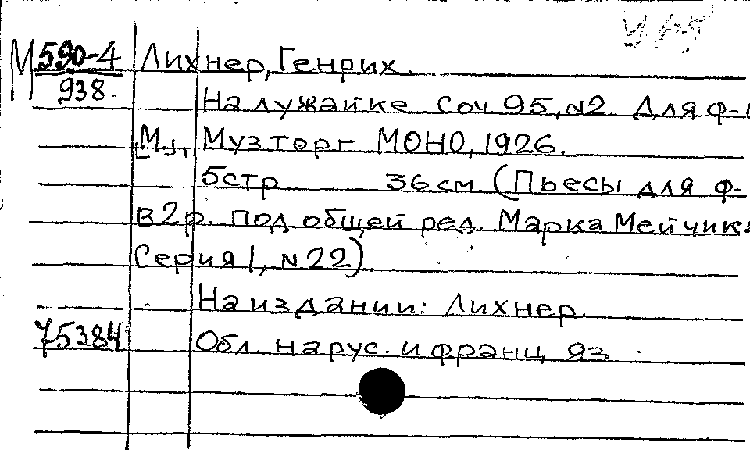 М 590-4 Лихнер, Генрих.
938.
На лужайке Соч 95, №2. Для ф-
[М.], Музторг МОНО, 1926.
5стр 36см (Пьесы для ф-
в 2р. под общей ред. Марка Мейчик
Серия 1, №22)
На издании: Лихнер
75384 Обл на рус. и франц яз